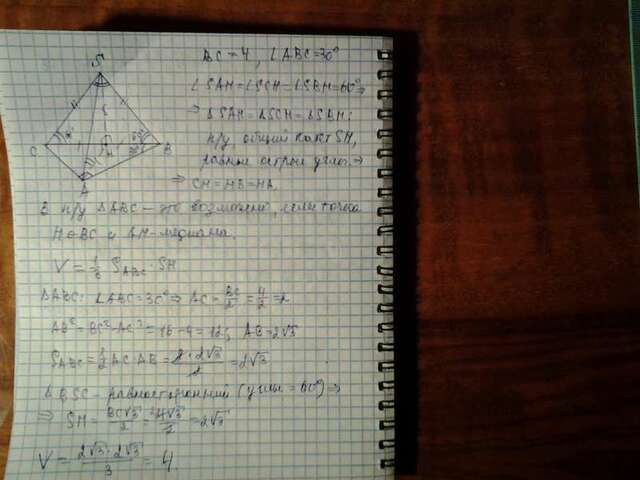 BC=4, ∠ABC=30°
∠SAH=∠SCH=∠SBH=60°⇒
⇒ ΔSAH=ΔSCH=ΔSBH:
п/у общий катет SH,
равные острые углы ⇒
⇒ CH=HB=HA.
В п/у ΔABC – это возможно, если точка
H∈BC и AH – медиана.
V=1/3 S_ABC·SH
ΔABC: ∠ABC=30°⇒ AC=BC/2=4/2=2
AB²=BC²-AC²=16-4=12; AB=2√3
S_ABC=1/2 AC·AB=2·2√3/2=2√3
ΔBSC – равносторонний (углы=60°)⇒
⇒ SH=BC√3/2=4√3/2=2√3
V=2√3·2√3/3=4
S
C
H
B
A